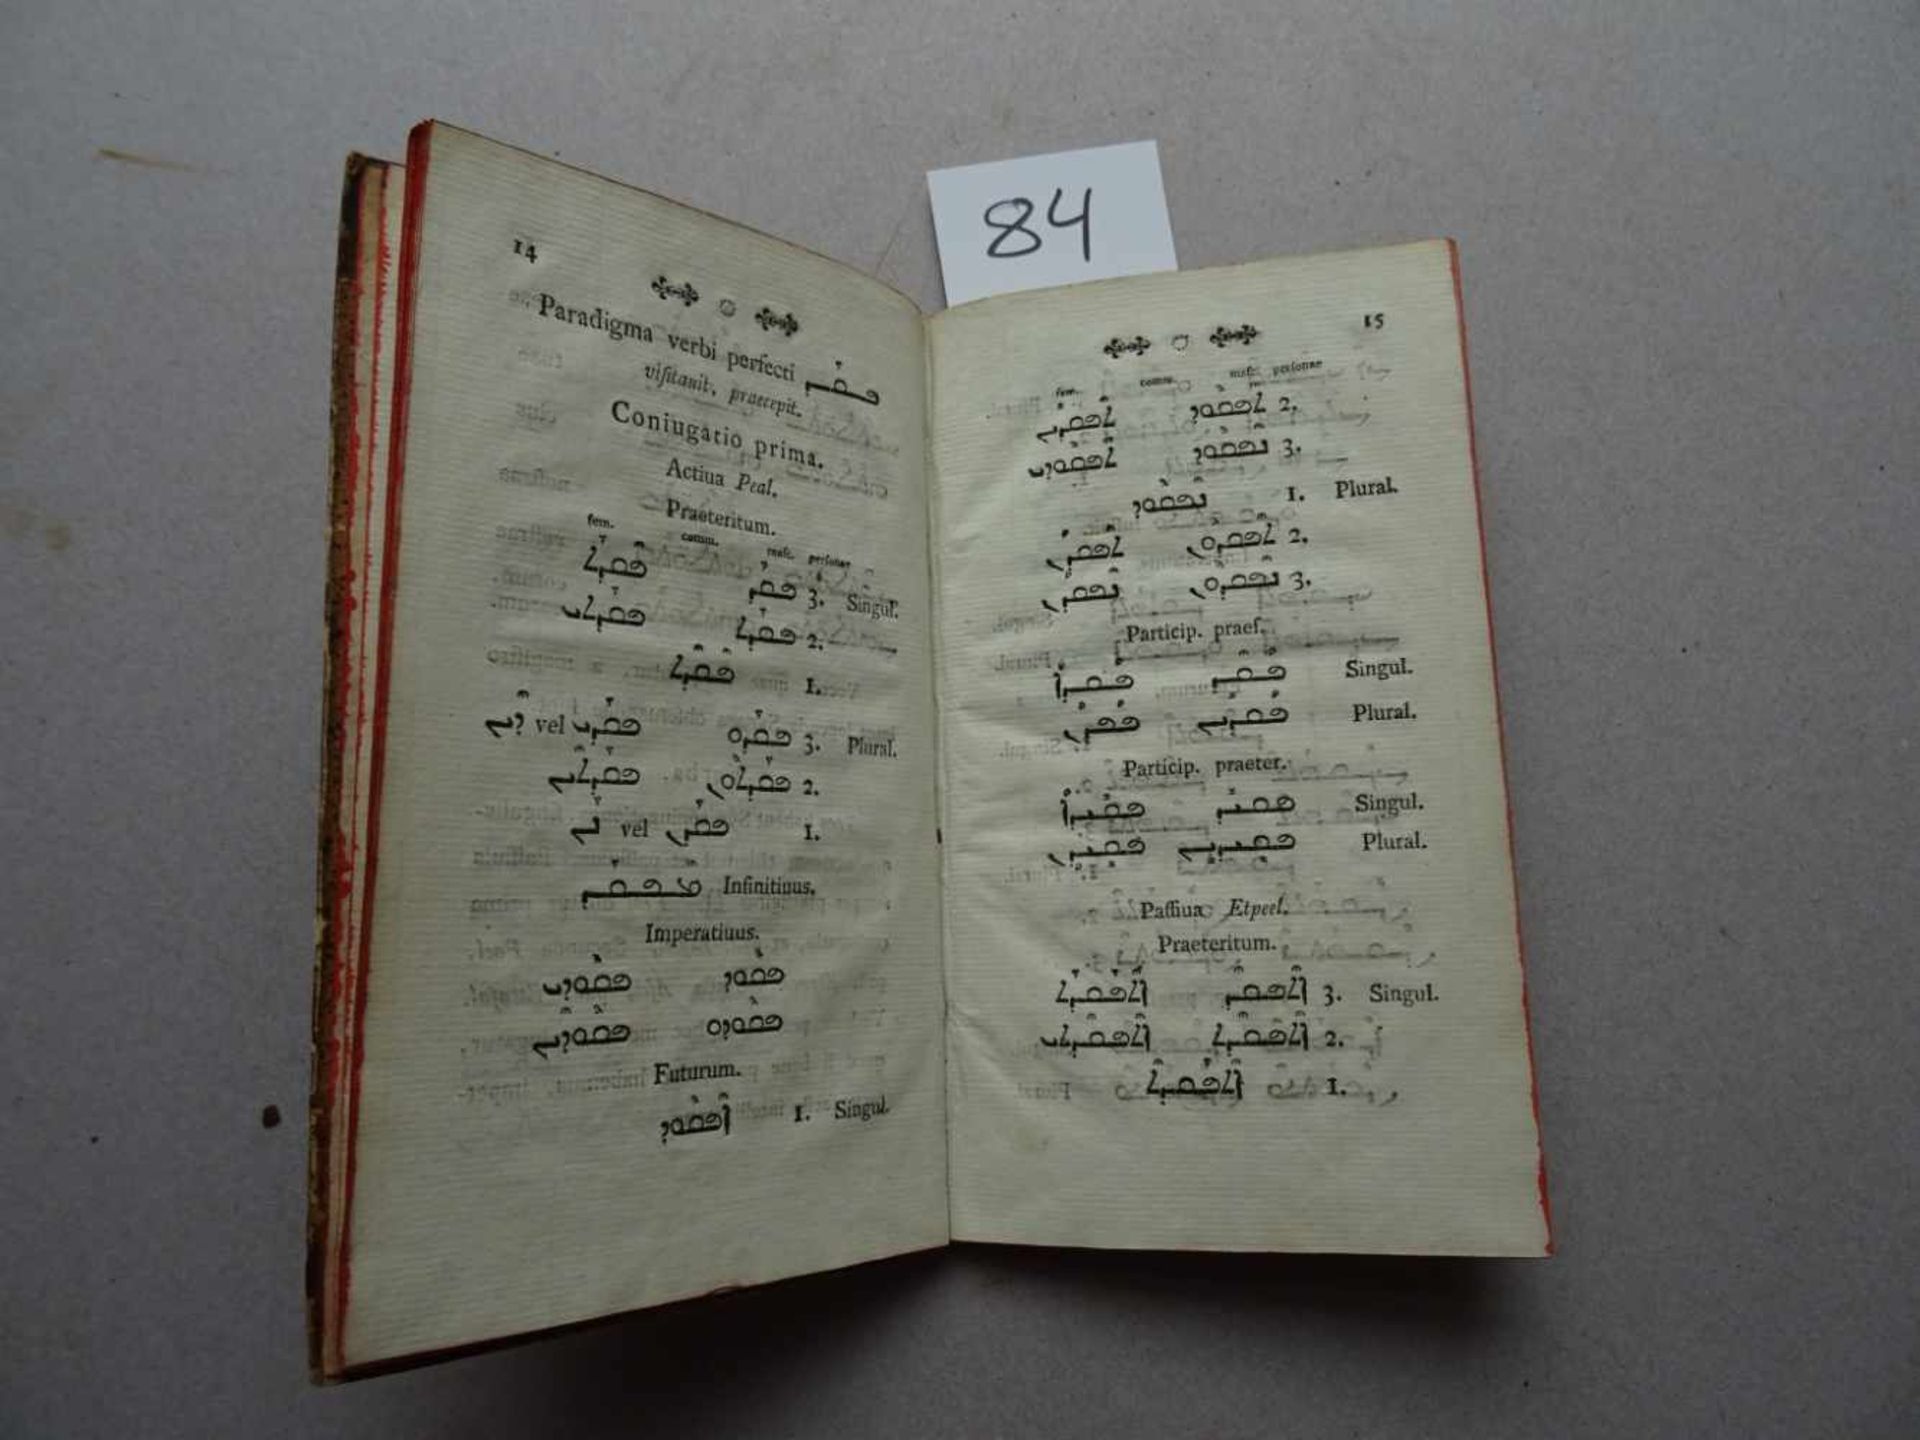 84
14
Paradigma verbi perfecti ܦܩܕ
viſitauit, praecepit.
Coniugatio prima.
Actiua Peal.
Praeteritum.
fem. comm. maſc. perſonae
ܦܩܕܬ ܦܩܕ 3. Singul.
ܦܩܕܬܝ ܦܩܕܬ 2.
ܦܩܕܬ 1.
ܦܩܕܝ vel ܕܝܢ ܦܩܕܘ 3. Plural.
ܦܩܕܬܝܢ ܦܩܕܬܘܢ 2.
ܦܩܕܢ vel 1.
ܡܦܩܕ Infinitiuus.
Imperatiuus.
ܦܩܘܕܝ ܦܩܘܕ
ܦܩܘܕܝܢ ܦܩܘܕܘ
Futurum.
ܐܦܩܘܕ 1. Singul.
15
fem. comm. maſc. perſonae
ܬܦܩܕܝܢ ܬܦܩܘܕ 2.
ܬܦܩܘܕܝ ܢܦܩܘܕ 3.
ܢܦܩܘܕ 1. Plural.
ܬܦܩܕܢ ܬܦܩܕܘܢ 2.
ܢܦܩܕܢ ܢܦܩܕܘܢ 3.
Particip. praeſ.
ܦܩܕܐ ܦܩܕ Singul.
ܦܩܕܢ ܦܩܕܝܢ Plural.
Particip. praeter.
ܦܩܝܕܐ ܦܩܝܕ Singul.
ܦܩܝܕܢ ܦܩܝܕܝܢ Plural.
Paſſiua Etpeel.
Praeteritum.
ܐܬܦܩܕܬ ܐܬܦܩܕ 3. Singul.
ܐܬܦܩܕܬܝ ܐܬܦܩܕܬ 2.
ܐܬܦܩܕܬ 1.